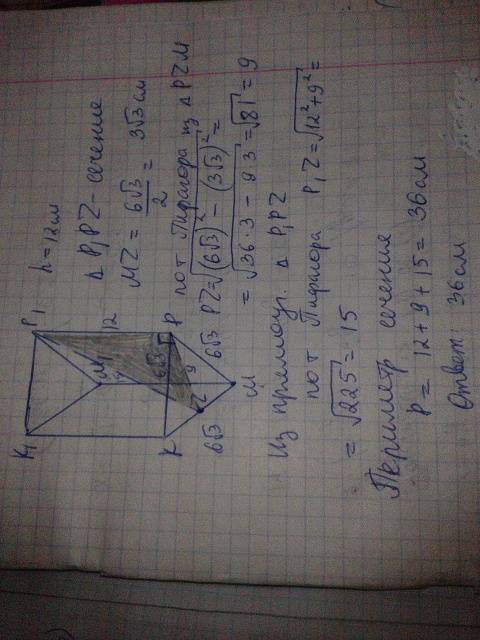 h = 12 см
Δ P₁PZ - сечение
MZ = 6√3 / 2 = 3√3 см
по т Пифагора из Δ PZM
PZ = √(6√3)² - (3√3)² =
= √36·3 - 9·3 = √81 = 9
Из прямоуг. Δ P₁PZ
по т Пифагора P₁Z = √12² + 9² =
= √225 = 15
Периметр сечение
P = 12 + 9 + 15 = 36 см
Ответ: 36 см
K₁
P₁
M₁
12
6√3
9
K
P
Z
6√3
6√3
M